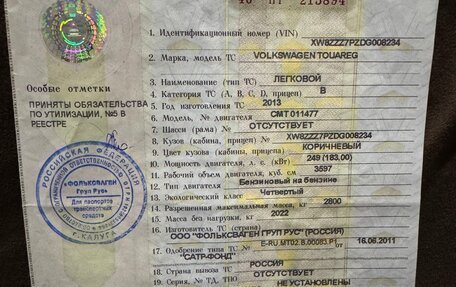 1. Идентификационный номер (VIN)
XW8ZZZ7PZDG008234
2. Марка, модель ТС VOLKSWAGEN TOUAREG
3. Наименование (тип ТС) ЛЕГКОВОЙ
4. Категория ТС (А, В, С, D, прицеп) B
5. Год изготовления ТС 2013
6. Модель, № двигателя CMT 011477
7. Шасси (рама) № ОТСУТСТВУЕТ
8. Кузов (кабина, прицеп) № XW8ZZZ7PZDG008234
9. Цвет кузова (кабины, прицепа) КОРИЧНЕВЫЙ
10. Мощность двигателя, л. с. (кВт) 249 (183.00)
11. Рабочий объем двигателя, куб. см 3597
12. Тип двигателя Бензиновый на бензине
13. Экологический класс Четвертый
14. Разрешенная максимальная масса, кг 2800
15. Масса без нагрузки, кг 2022
16. Изготовитель ТС (страна)
ООО "ФОЛЬКСВАГЕН ГРУП РУС" (РОССИЯ)
17. Одобрение типа ТС № E-RU.MT02.B.00083.P1 от 16.06.2011
"САТР-ФОНД"
18. Страна вывоза ТС РОССИЯ
19. Серия, № ТД, ТПО ОТСУТСТВУЕТ
НЕ УСТАНОВЛЕНЫ
Особые отметки
ПРИНЯТЫ ОБЯЗАТЕЛЬСТВА
ПО УТИЛИЗАЦИИ, №5 В
РЕЕСТРЕ
РОССИЙСКАЯ ФЕДЕРАЦИЯ
«ФОЛЬКСВАГЕН
Груп Рус»
Для паспортов
транспортных
средств
Г. КАЛУГА